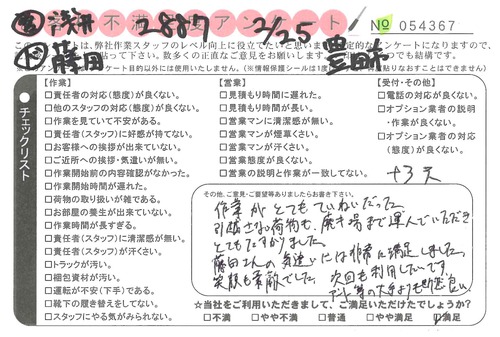 営 浅井 2887 2/25 № 054367
不満足度アンケート
作 藤田 豊田市
このアンケートは、弊社作業スタッフのレベル向上に役立てたいと思います。
●チェックリスト
【作業】
□責任者の対応(態度)が良くない。
□他のスタッフの対応(態度)が良くない。
□作業を見ていて不安がある。
□責任者(スタッフ)に好感が持てない。
□お客様への挨拶が出来ていない。
□ご近所への挨拶・気遣いが無い。
□作業開始前の内容確認がなかった。
□作業開始時間が遅れた。
□荷物の取り扱いが雑である。
□お部屋の養生が出来ていない。
□作業時間が長すぎる。
□責任者(スタッフ)に清潔感が無い。
□責任者(スタッフ)が汗くさい。
□トラックが汚い。
□梱包資材が汚い。
□運転が不安(下手)である。
□靴下の履き替えをしてない。
□スタッフにやる気がみられない。
【営業】
□見積もり時間に遅れた。
□見積もり時間が長い。
□営業マンに清潔感が無い。
□営業マンが煙草くさい。
□営業マンが汗くさい。
□営業態度が良くない。
□営業の説明と作業が一致してない。
【受付・その他】
□電話の対応が良くない。
□オプション業者の説明・作業が良くない。
□オプション業者の対応(態度)が良くない。
その他、ご意見・ご要望等ありましたらお書き下さい。
作業がとてもていねいだった。
引越さない荷物も、廃き場まで運んでいただき、
とてもたすかりました。
藤田さんの気遣いには非常に満足しました。
笑顔も素敵でした。次回も利用したいです。
アート等の大手よりも断然良い。
☆当社をご利用いただきまして、ご満足いただけたでしょうか?
□不満 □やや不満 □普通 □やや満足 ☑満足